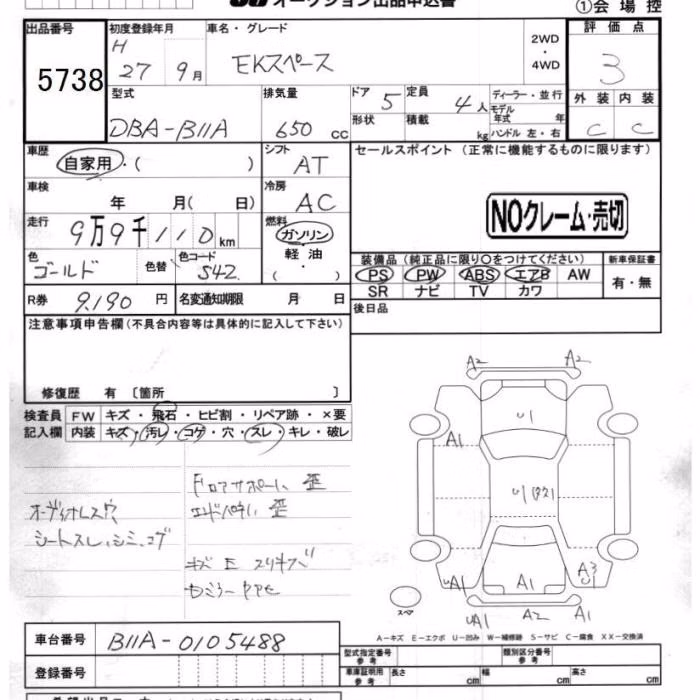 オークション出品申込書
①会場控
出品番号
5738
初度登録年月
H
27 9月
車名・グレード
EKスペース
2WD
・
4WD
評価点
3
型式
DBA-B11A
排気量
650 cc
ドア 5
形状
定員 4人
積載 kg
ディーラー・並行
モデル年式 年
ハンドル 左・右
外装 内装
C C
車歴
自家用・( )
シフト
AT
セールスポイント (正常に機能するものに限ります)
車検
年 月( 日)
冷房
AC
NOクレーム・売切
走行
9万9千110km
燃料
ガソリン
軽油
( )
色
ゴールド
色替
色コード
542
装備品 (純正品に限り○をつけてください)
新車保証書
PS PW ABS エアB AW
SR ナビ TV カワ
有・無
R券 9,190円
名変通知期限 月 日
後日品
注意事項申告欄(不具合内容等は具体的に記入して下さい)
修復歴 有 〔箇所 〕
検査員 FW キズ・飛石・ヒビ割・リペア跡・×要
記入欄 内装 キズ・汚レ・コゲ・穴・スレ・キレ・破レ
フロアサポート 歪
エンドパネル 歪
オーディオレス穴
シートスレ、シミ、コゲ
キズ E スリキズ
A2 A2
U1
A1
U1
UA1 A1 A3
スペア
UA1 A2 A1
A-キズ E-エクボ U-凹み W-補修跡 S-サビ C-腐食 XX-交換済
車台番号 B11A-0105488
登録番号
型式指定番号 参考
類別区分番号 参考
車庫証明用 参考
長さ cm
幅 cm
高さ cm